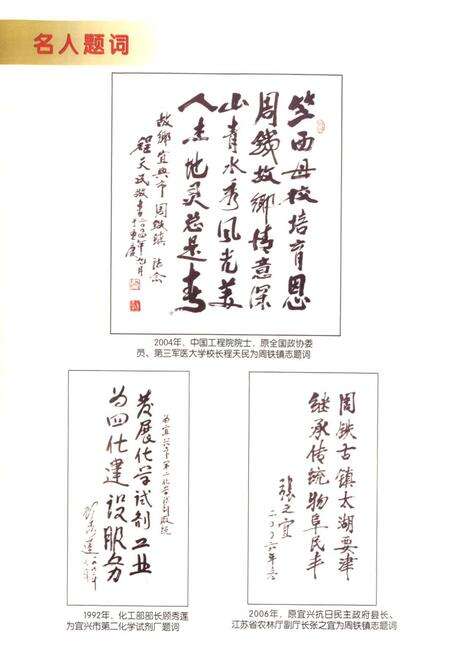 名人题词
竺西母校培育恩
周铁故乡情意深
山青水秀风光美
人杰地灵总是春
故乡宜兴市周铁镇
程天民敬书二〇〇四年九月
2004年，中国工程院院士，原全国政协委
员、第三军医大学校长程天民为周铁镇志题词
发展化学试剂工业
为四化建设服务
1992年，化工部部长顾秀莲
为宜兴市第二化学试剂厂题词
周铁古镇太湖要津
继承传统物阜民丰
张之宜
二〇〇六年
2006年，原宜兴抗日民主政府县长、
江苏省农林厅副厅长张之宜为周铁镇志题词